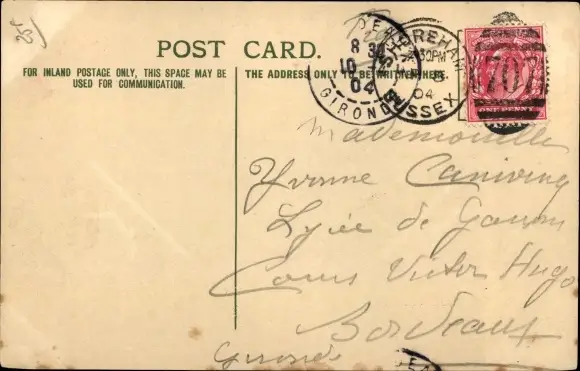 POST CARD.
FOR INLAND POSTAGE ONLY, THIS SPACE MAY BE
USED FOR COMMUNICATION.
THE ADDRESS ONLY TO BE WRITTEN HERE.
8 30
10
04
GIRONDE
SHOREHAM
30PM
04
SUSSEX
707
Mademoiselle
Yvonne
Lycée de
Cours Victor Hugo
Bordeaux
Gironde